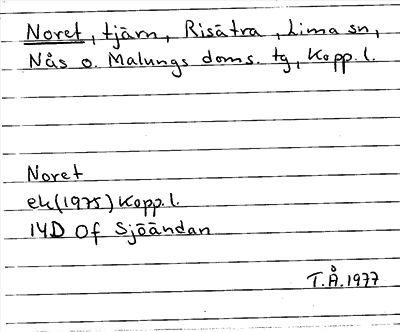 Noret, tjärn, Risätra, Lima sn,
Nås o. Malungs doms. tg, Kopp. l.
Noret
ek(1975) Kopp. l.
14D Of Sjöändan
T.Å. 1977